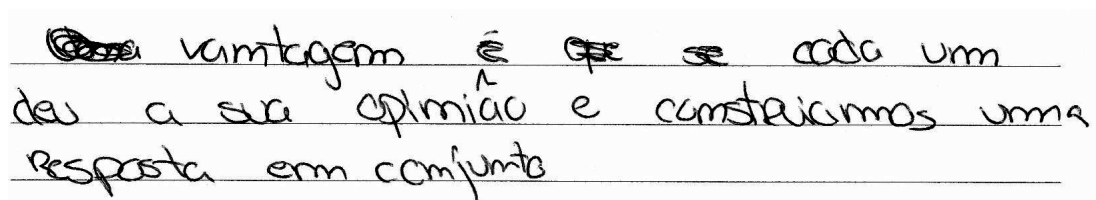 vantagem é cada um
deu a sua opinião e construiamos uma
resposta em conjunto